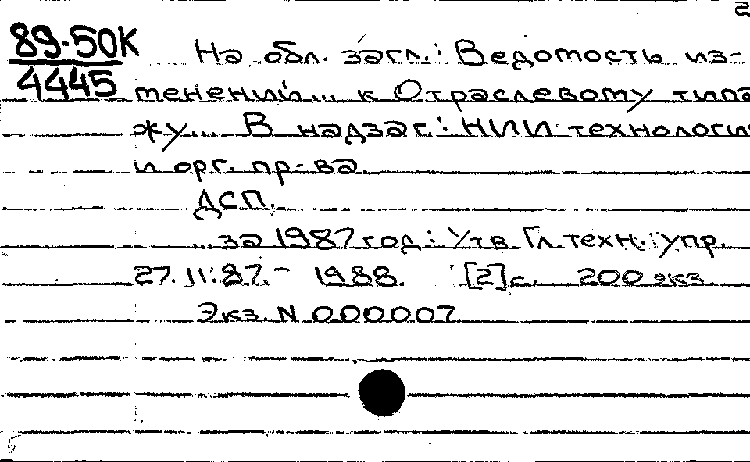 2
89-50К
4445
На обл. загл.: Ведомость из-
менений... к Отраслевому типа
жу... В надзаг.: НИИ технологии
и орг. пр-ва.
ДСП.
...за 1987 год: Утв. Гл. техн. упр.
27.11.87. - 1988. [2] с. 200 экз.
Экз. N 000007